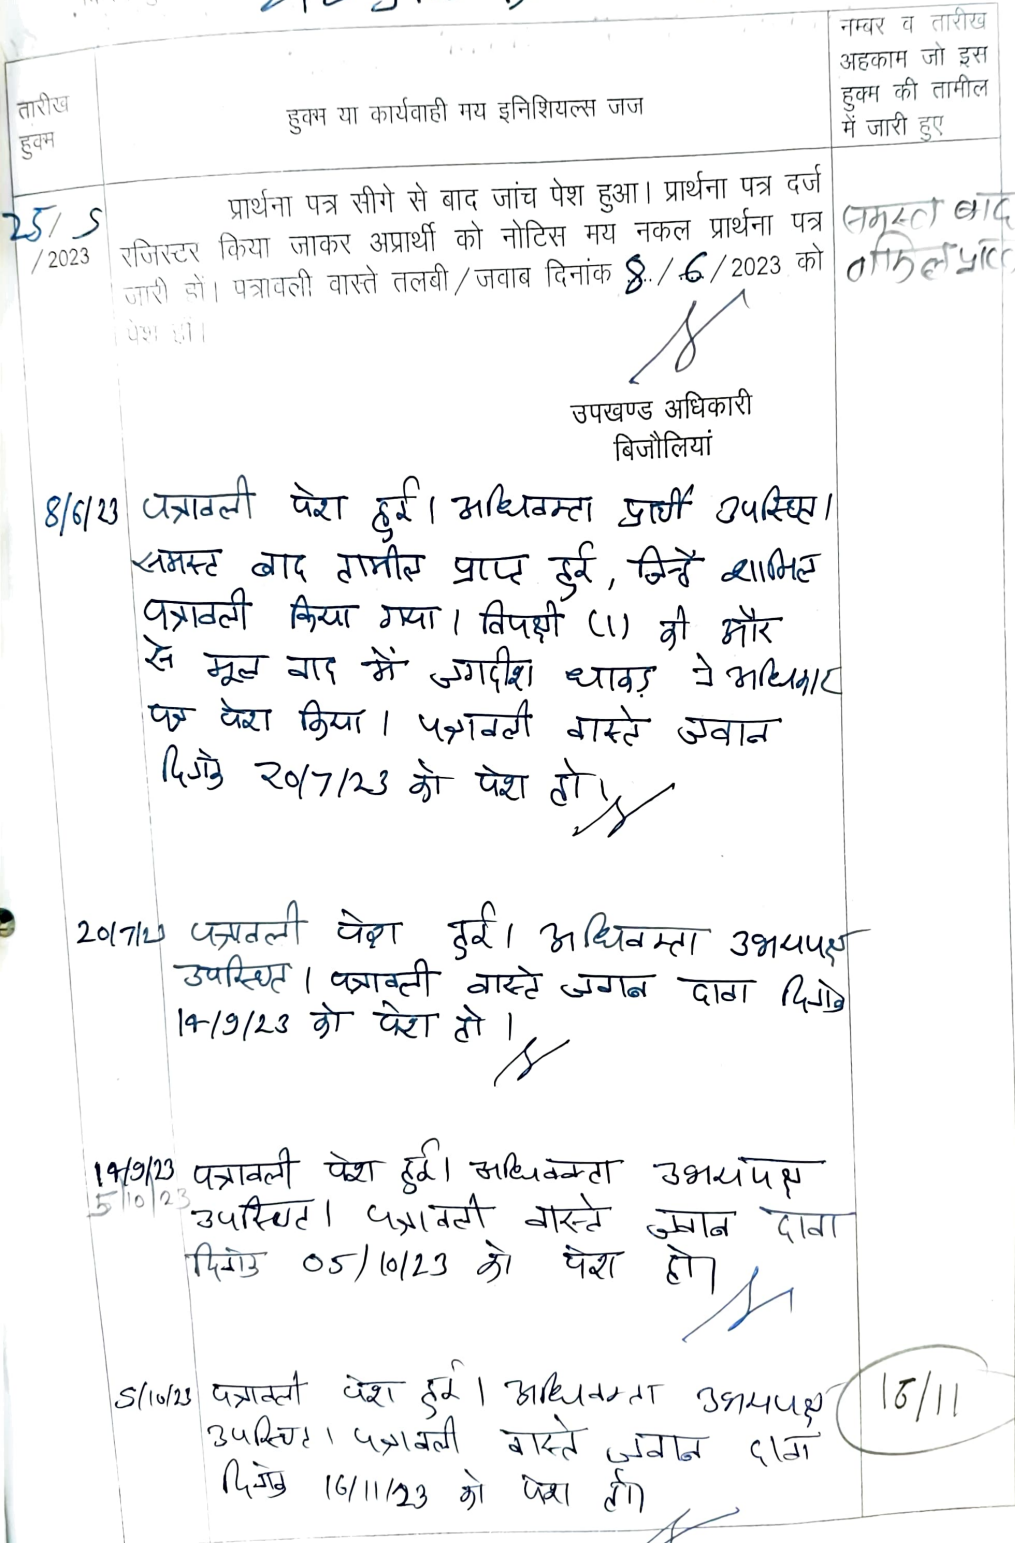 नम्बर व तारीख
अहकाम जो इस
हुक्म की तामील
में जारी हुए
तारीख
हुक्म
हुक्म या कार्यवाही मय इनिशियल्स जज
25/5
/2023
प्रार्थना पत्र सीगे से बाद जांच पेश हुआ। प्रार्थना पत्र दर्ज
रजिस्टर किया जाकर अप्रार्थी को नोटिस मय नकल प्रार्थना पत्र
जारी हों। पत्रावली वास्ते तलबी/जवाब दिनांक 8/6/2023 को
पेश हो।
समस्त बाद
उपखण्ड अधिकारी
बिजौलियां
8/6/23 पत्रावली पेश हुई। अधिवक्ता प्रार्थी उपस्थित।
समस्त बाद तामील प्राप्त हुई, जिन्हें शामिल
पत्रावली किया गया। विपक्षी (1) की और
से मूल वाद में जगदीश धाकड़ ने अधिकार
पत्र पेश किया। पत्रावली वास्ते जवाब
दिनांक 20/7/23 को पेश हो।
20/7/23 पत्रावली पेश हुई। अधिवक्ता उभयपक्ष
उपस्थित। पत्रावली वास्ते जवाब दावा दिनांक
14/9/23 को पेश हो।
14/9/23 पत्रावली पेश हुई। अधिवक्ता उभयपक्ष
5/10/23
उपस्थित। पत्रावली वास्ते जवाब दावा
दिनांक 05/10/23 को पेश हो।
5/10/23 पत्रावली पेश हुई। अधिवक्ता उभयपक्ष
16/11
उपस्थित। पत्रावली वास्ते जवाब दावा
दिनांक 16/11/23 को पेश हो।